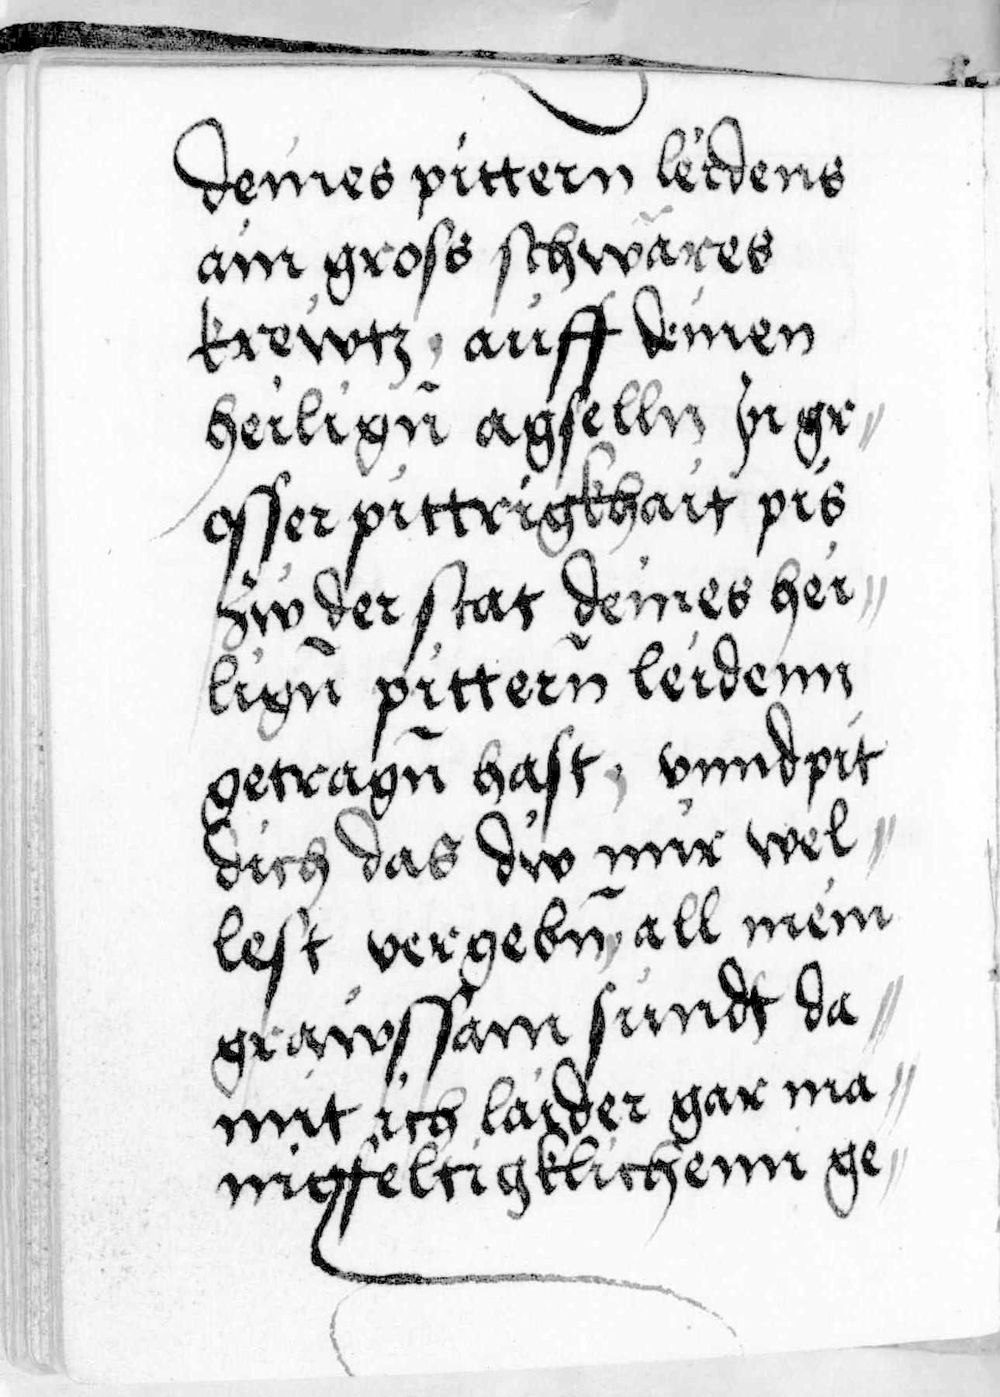 deines pittern leidens
ain gross schwäres
krewtz, auff deinen
heiligñ agselln yn gr//
osser pittrigkhait pis
zw der stat deines hei//
ligñ pitterñ leidenn
getragñ hast, vnnd pit
dich das dw mir wel//
lest vergebñ, all mein
grawssam sundt da//
mit ich laider gar ma//
nigfeltigklichenn ge//